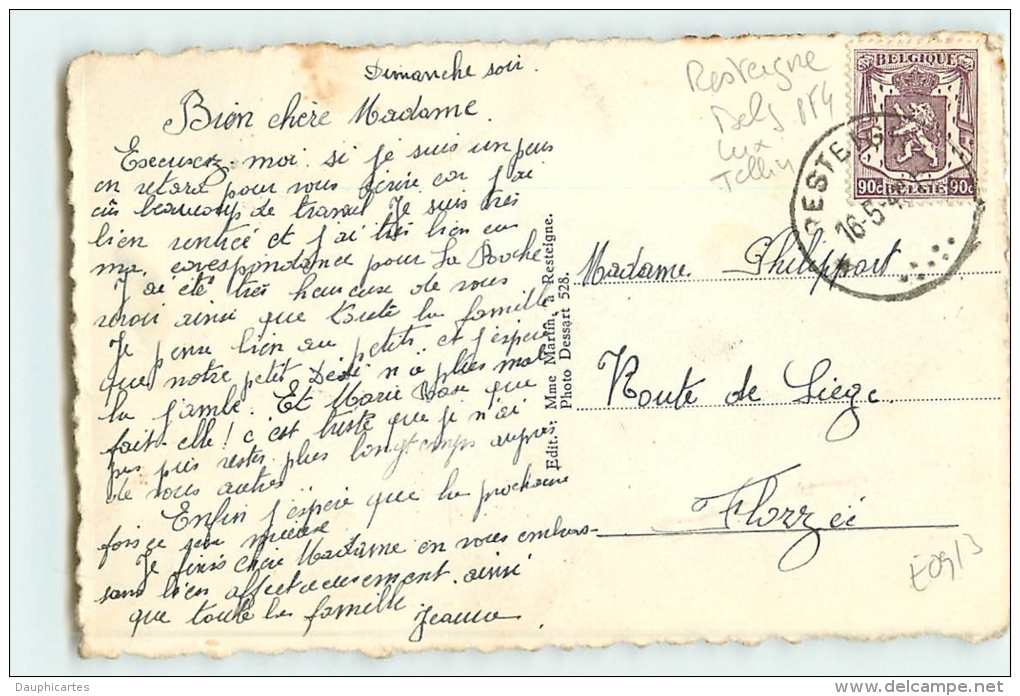 Dimanche soir.
Bien chère Madame.
Excusez-moi si je suis un peu
en retard pour vous écrire car j'ai
eu beaucoup de travail Je suis très
bien rentrée et j'ai très bien eu
ma correspondance pour La Roche
J'ai été très heureuse de vous
revoir ainsi que toute la famille
Je pense bien au petits et j'espère
que notre petit Dédé n'a plus mal
la jambe. Et Marie Rose que
fait-elle! c'est triste que je n'ai
pas puis rester plus longtemps auprès
de vous autres
Enfin j'espère que la prochaine
fois ce sera mieux
Je finis chère Madame en vous embras-
sant bien affectueusement ainsi
que toute la famille
Jeanne
Edit.: Mme Martin, à Resteigne.
Photo Dessart 528.
Resteigne
Belg
Lux
Tellin
BELGIQUE
90c BELGIË 90c
RESTEIG
16-5-4
Madame Philippart
Route de Liège
Florzéé
Dauphicartes
www.delcampe.net